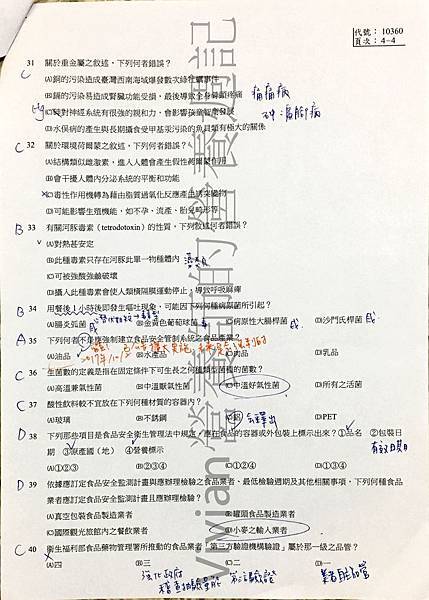 代號：10360
頁次：4-4
C 31 關於重金屬之敘述，下列何者錯誤？
(A)銅的污染造成臺灣西南海域爆發數次綠牡蠣事件
(B)鎘的污染易造成腎臟功能受損，最後導致全身骨頭疼痛 痛痛病
對神經系統有很強的親和力，會影響孩童智能發展
(D)水俣病的產生與長期攝食受甲基汞污染的魚貝類有極大的關係
C 32 關於環境荷爾蒙之敘述，下列何者錯誤？
(A)結構類似雌激素，進入人體會產生假性荷爾蒙作用
(B)會干擾人體內分泌系統的平衡和功能
(C)毒性作用機轉為藉由脂質過氧化反應產生誘突變物
(D)可能影響生殖機能，如不孕、流產、胎兒畸形等
B 33 有關河豚毒素（tetrodotoxin）的性質，下列敘述何者錯誤？
(A)對熱甚安定
(B)此種毒素只存在河豚此單一物種體內
(C)可被強酸強鹼破壞
(D)攝入此種毒素會使人類橫隔膜運動停止，導致呼吸麻痺
B 34 用餐後1小時後即發生嘔吐現象，可能因下列何種病原菌所引起？
(A)腸炎弧菌 (B)金黃色葡萄球菌 (C)病原性大腸桿菌 (D)沙門氏桿菌
A 35 下列何者不是應強制建立食品安全管制系統之食品業？
(A)油品 (B)水產品 (C)肉品 (D)乳品
C 36 生菌數的定義是指在固定條件下可生長之何種類型菌種的菌數？
(A)高溫兼氧性菌 (B)中溫厭氧性菌 (C)中溫好氧性菌 (D)所有之活菌
C 37 酸性飲料較不宜放在下列何種材質的容器內？
(A)玻璃 (B)不銹鋼 (C)鋁 (D)PET
D 38 下列那些項目是食品安全衛生管理法中規定，應在食品的容器或外包裝上標示出來？①品名 ②包裝日
期 ③原產國（地） ④營養標示 有效日期
(A)①②③ (B)②③④ (C)①②④ (D)①③④
D 39 依據應訂定食品安全監測計畫與應辦理檢驗之食品業者、最低檢驗週期及其他相關事項，下列何種食品
業者應訂定食品安全監測計畫且應辦理檢驗？
(A)真空包裝食品製造業者 (B)罐頭食品製造業者
(C)國際觀光旅館內之餐飲業者 (D)小麥之輸入業者
C 40 衛生福利部食品藥物管理署所推動的食品業者「第三方驗證機構驗證」屬於那一級之品管？
(A)四 (B)三 (C)二 (D)一
Vivian營養師的營養週記